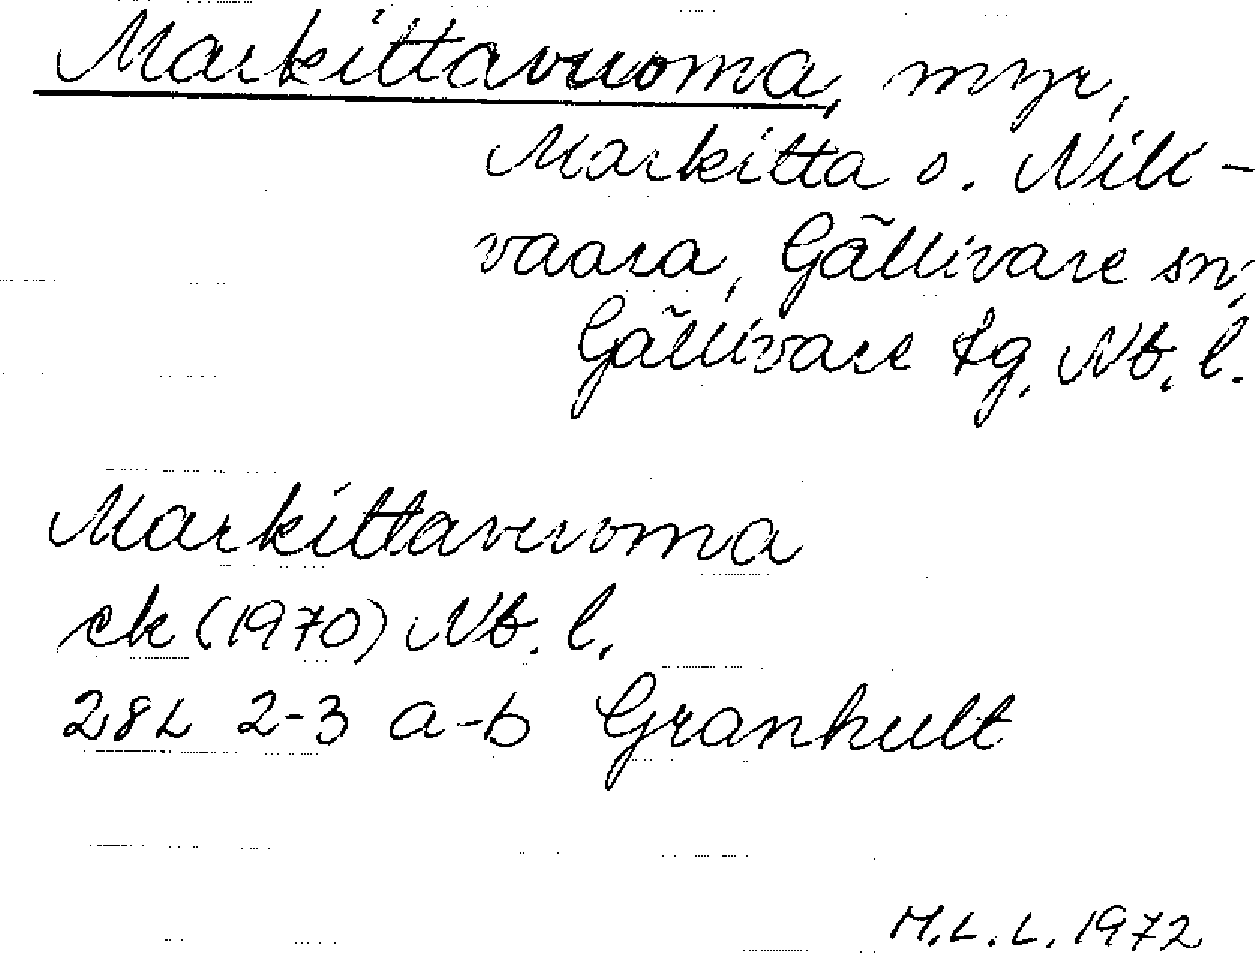 Markittavuoma, myr,
Markitta o. Nili-
vaara, Gällivare sn,
Gällivare tg. Nb. l.
Markittavuoma
ek (1970) Nb. l.
28L 2-3 a-b Granhult
M.L.L. 1972